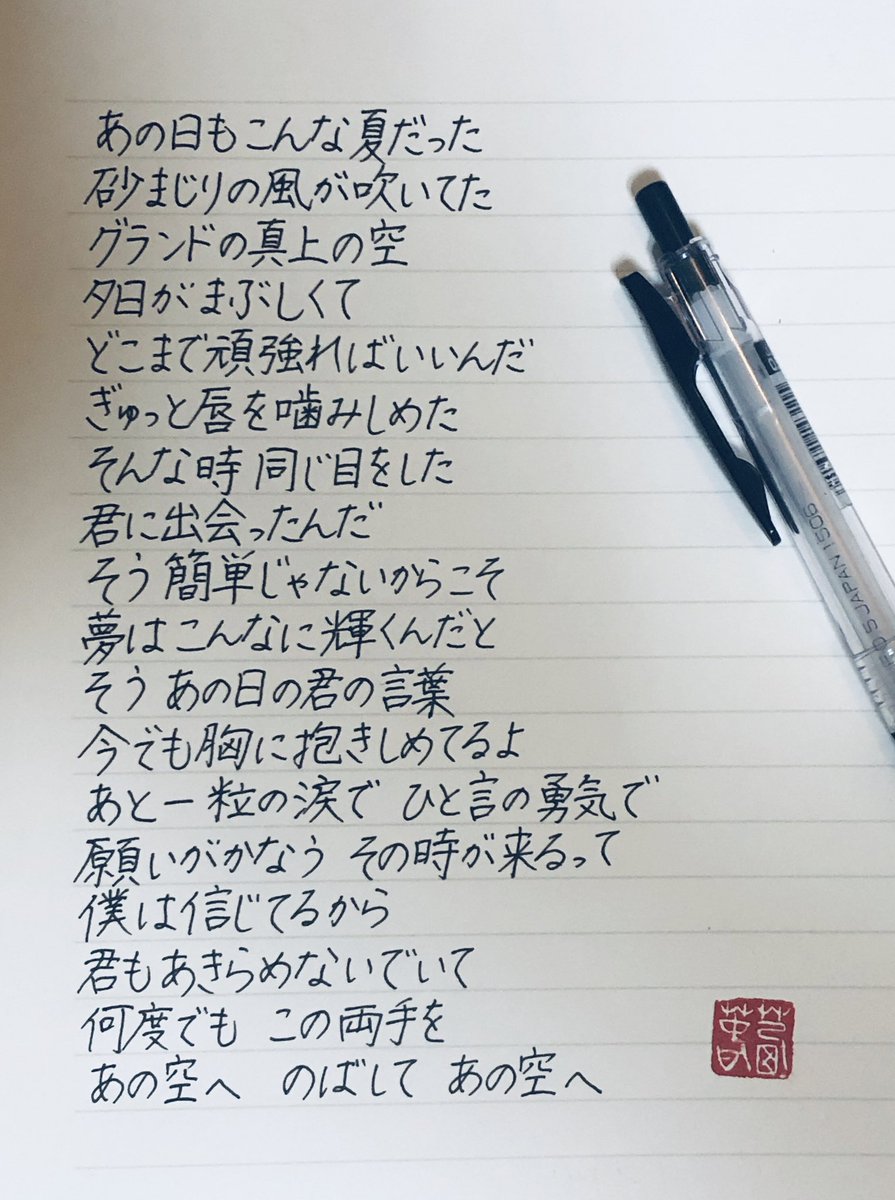 あの日もこんな夏だった
砂まじりの風が吹いてた
グランドの真上の空
夕日がまぶしくて
どこまで頑強ればいいんだ
ぎゅっと唇を噛みしめた
そんな時 同じ目をした
君に出会ったんだ
そう 簡単じゃないからこそ
夢はこんなに輝くんだと
そう あの日の君の言葉
今でも胸に抱きしめてるよ
あと一粒の涙で ひと言の勇気で
願いがかなう その時が来るって
僕は信じてるから
君もあきらめないでいて
何度でも この両手を
あの空へ のばして あの空へ
JAPAN 1506